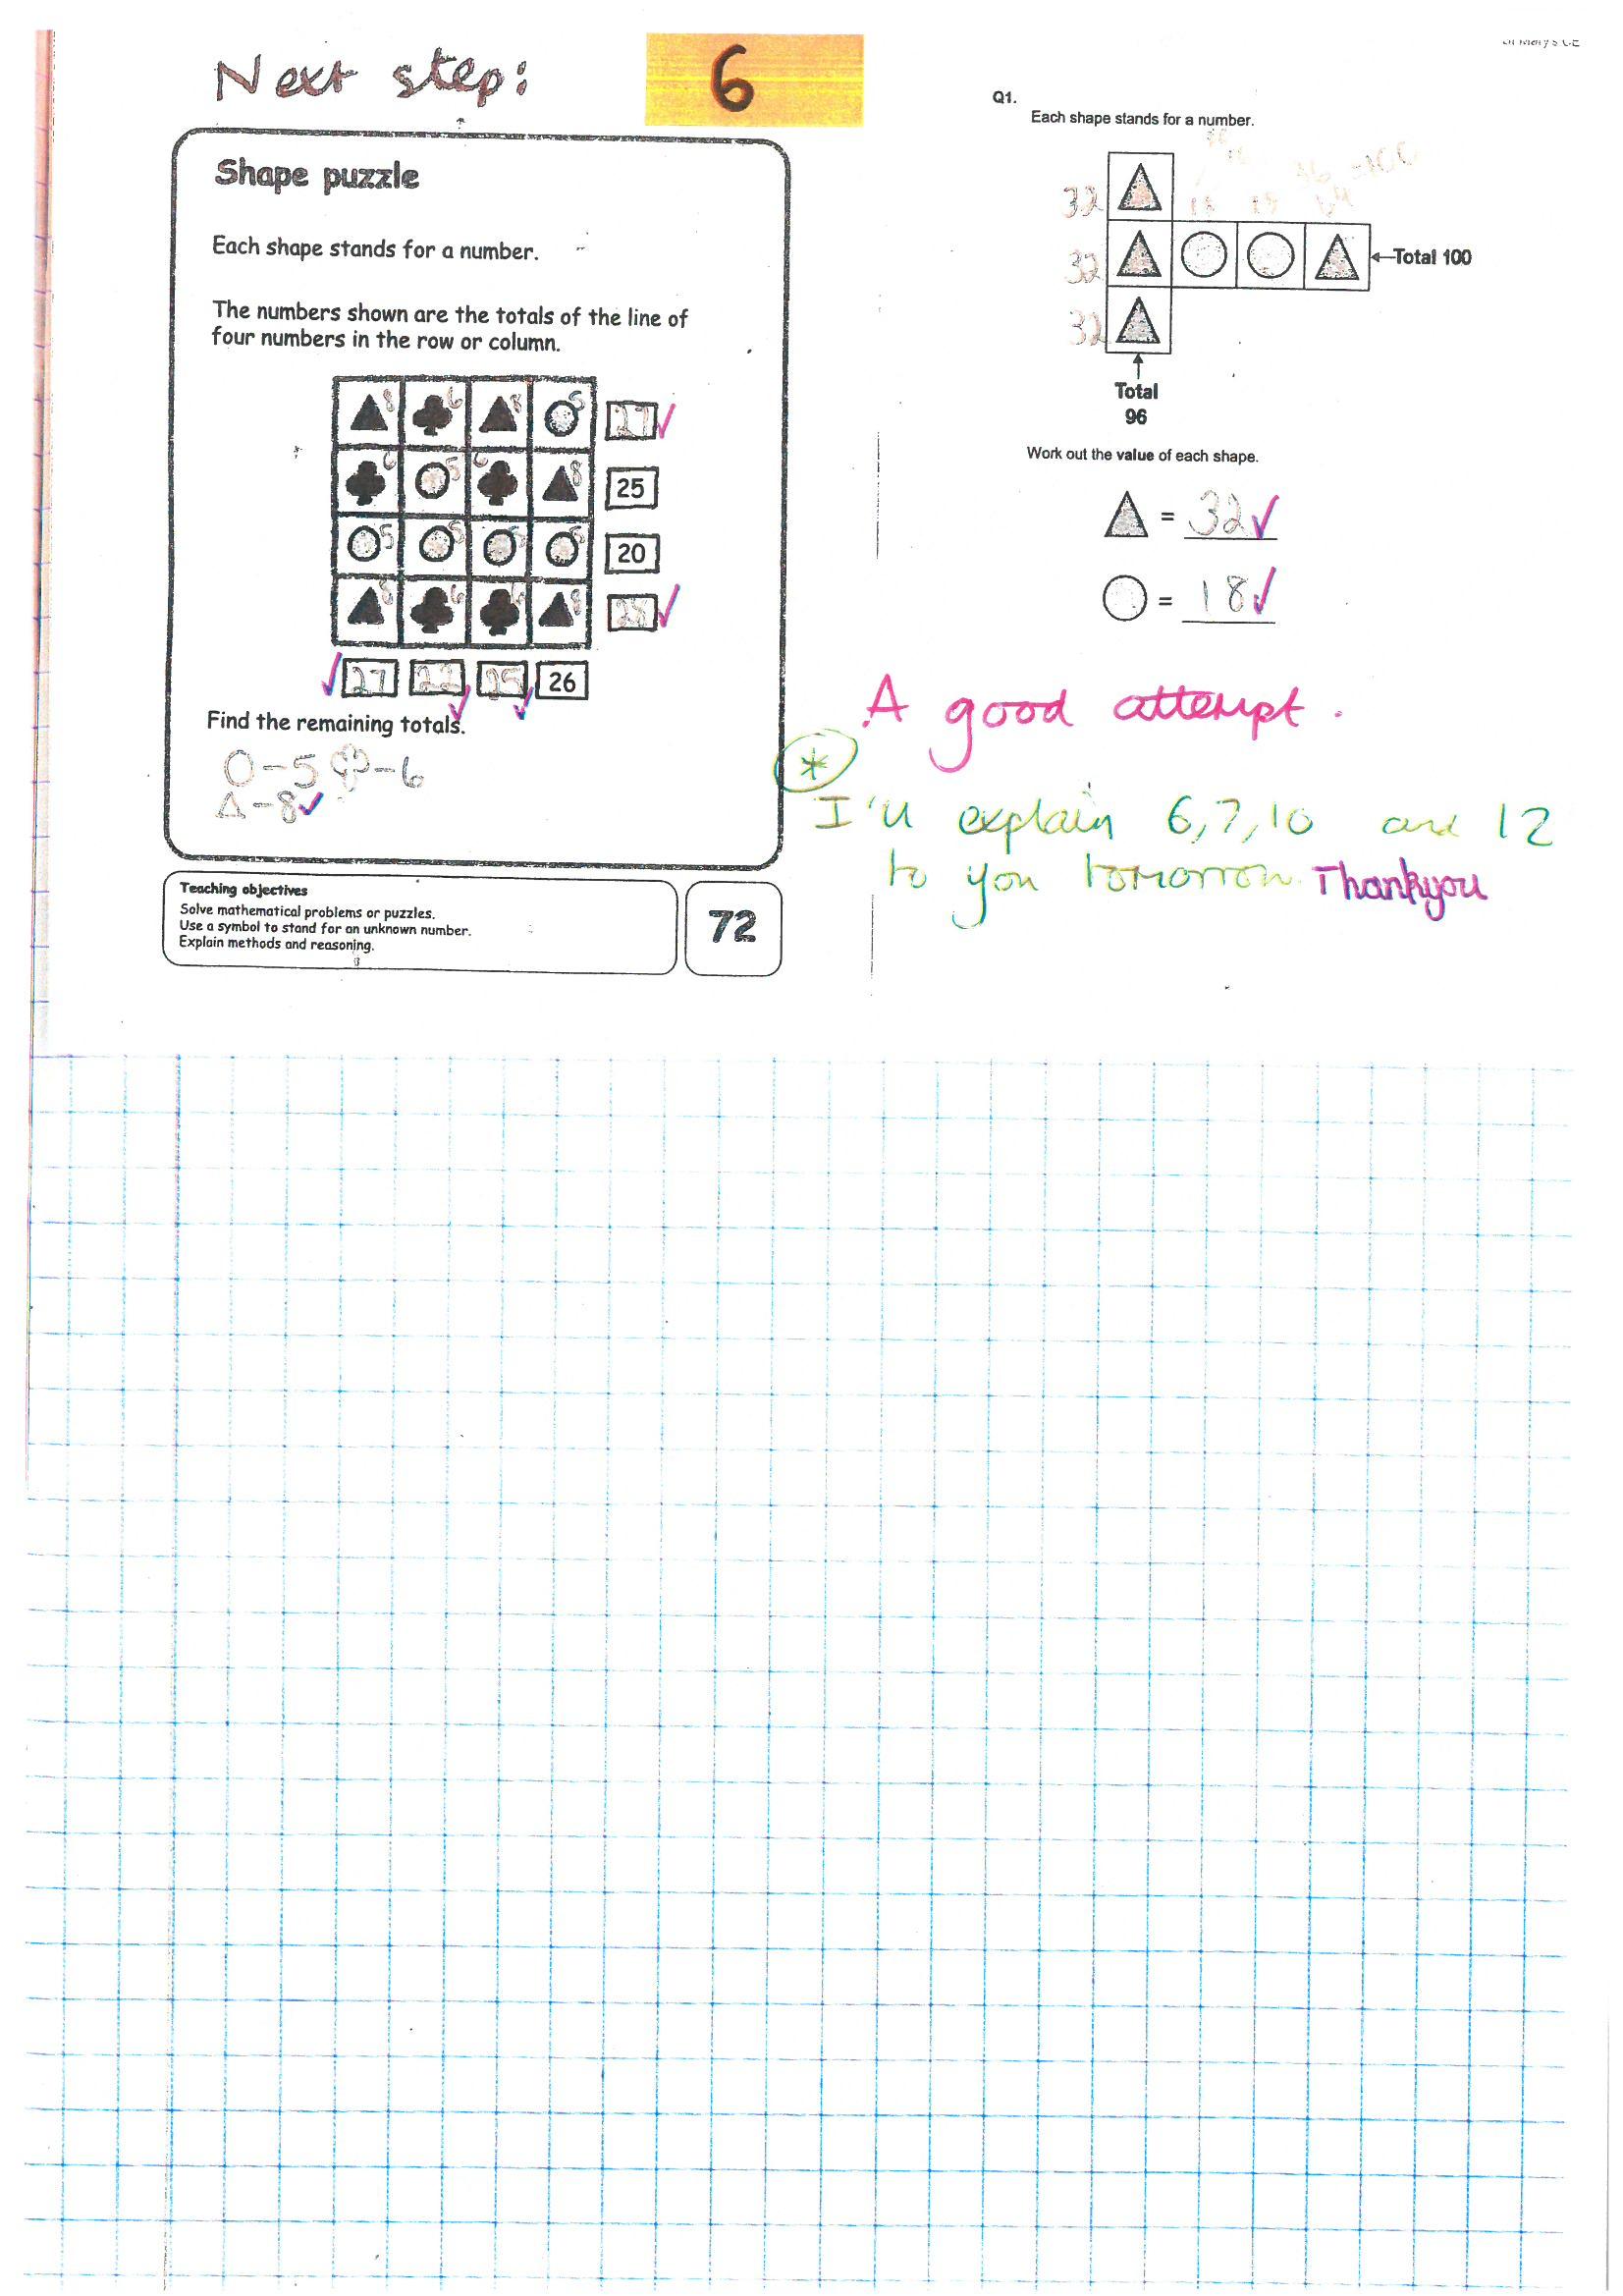 Next step:
6
Shape puzzle
Each shape stands for a number.
The numbers shown are the totals of the line of
four numbers in the row or column.
8 6 8 5 27
6 5 6 8 25
5 5 5 5 20
8 6 6 8 28
27 22 25 26
Find the remaining totals.
O-5 -6
Δ-8
Teaching objectives
Solve mathematical problems or puzzles.
Use a symbol to stand for an unknown number.
Explain methods and reasoning.
72
Q1.
Each shape stands for a number.
32
18 18 64
32 Total 100
32
Total
96
Work out the value of each shape.
= 32
= 18
A good attempt.
*
I'll explain 6, 7, 10 and 12
to you tomorrow. Thankyou